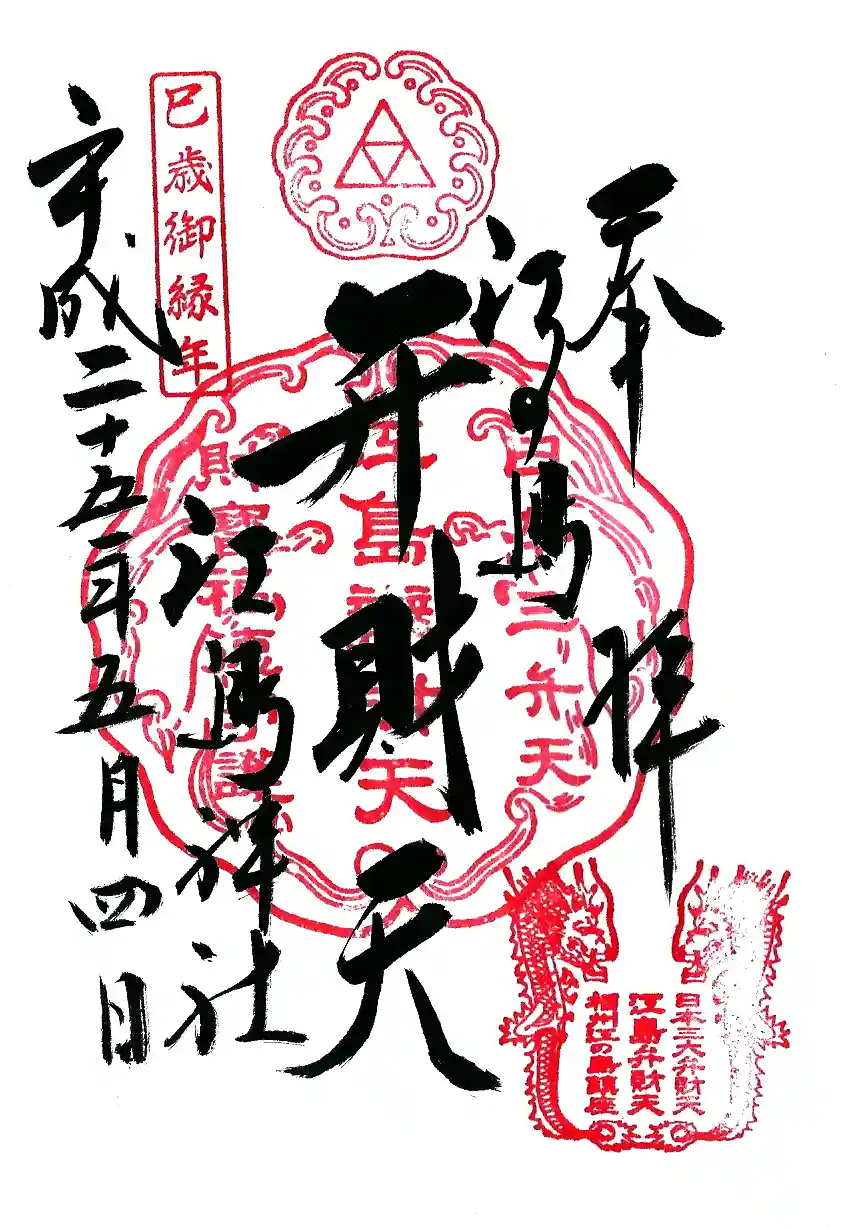 奉拝
江の島
弁財天
江島神社
平成二十五年五月四日
巳歳御縁年
日本三弁天
江島辨財天
日本三大弁財天
江島弁財天
相州江の島鎮座